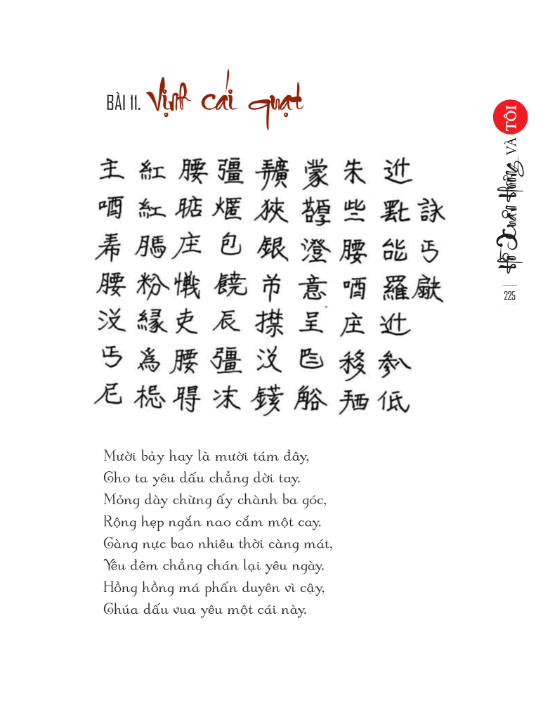 BÀI 11. Vịnh cái quạt
詠丐
能羅低
朱些腰庄移
蒙澄意呈
狹銀没
彊包饒辰彊沫
腰庄吏腰
紅紅粉緣為
主腰没丐尼
Mười bảy hay là mười tám đây,
Cho ta yêu dấu chẳng dời tay.
Mỏng dày chừng ấy chành ba góc,
Rộng hẹp ngắn nao cắm một cay.
Càng nực bao nhiêu thời càng mát,
Yêu đêm chẳng chán lại yêu ngày.
Hồng hồng má phấn duyên vì cậy,
Chúa dấu vua yêu một cái này.
Hồ Xuân Hương VÀ TÔI
225